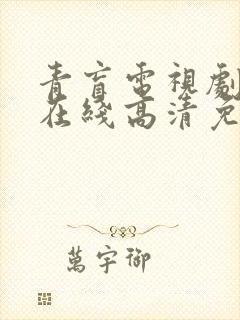 青盲電視劇
在綫高清免
萬宇御